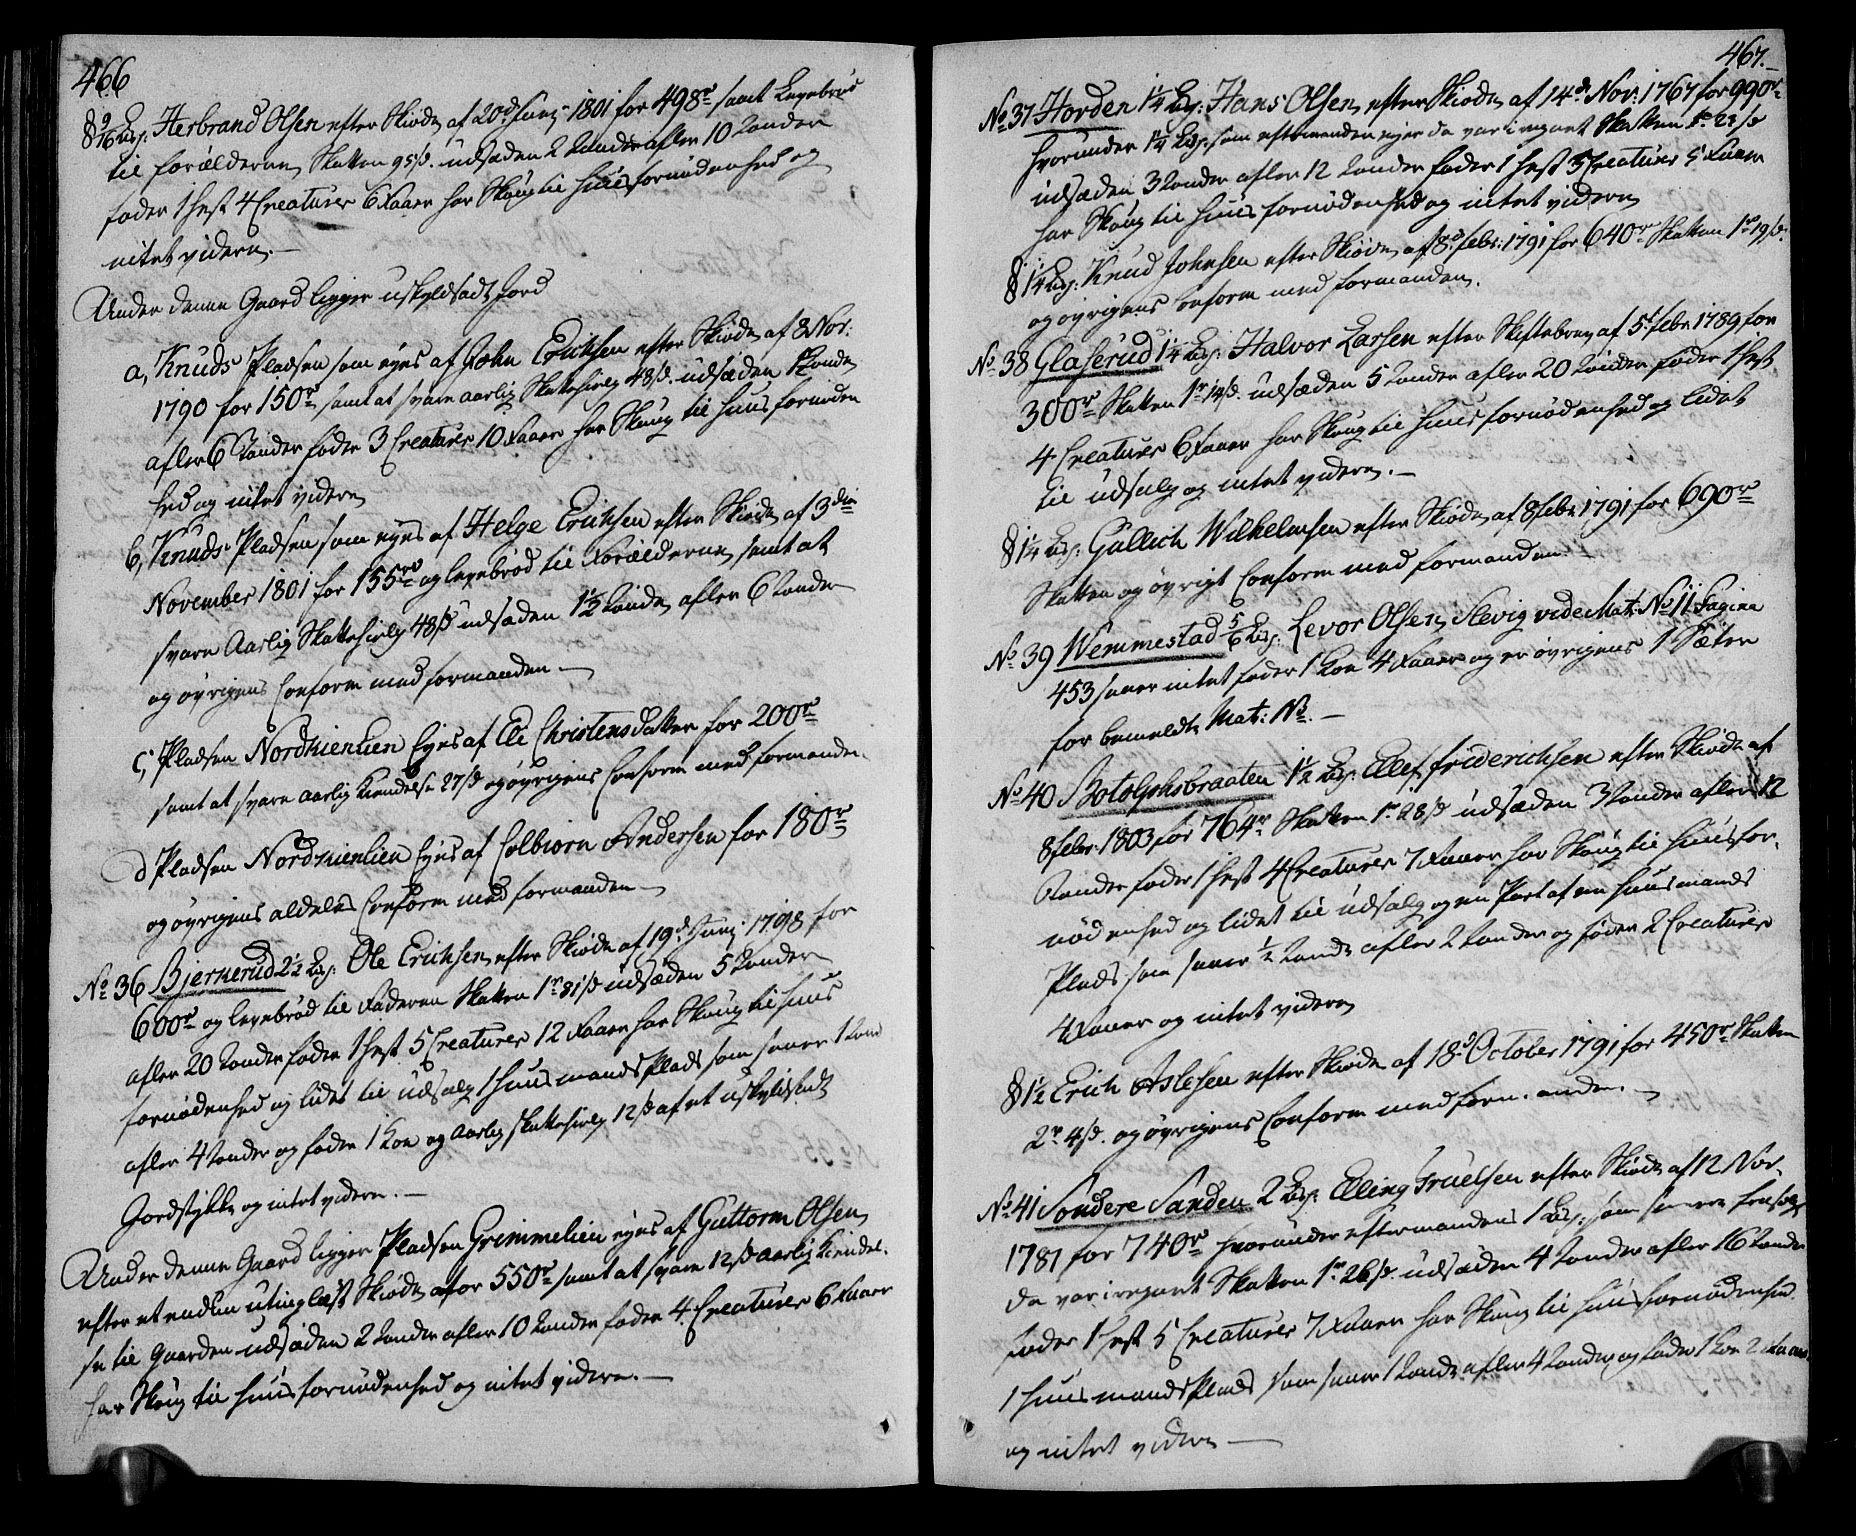 466
§ 9/16 Lisp: Herbrand Olsen efter Skiøde af 20d Junj 1801 for 498rd samt Levebrød
til forælderne, Skatten 95 s. udsæden 2 Tønder afler 10 Tønder
føder 1 Hest 4 Creaturer 6 Faaer har Skoug til Huusfornødenhed og
intet videre. —
Under denne Gaard ligger uskyldsadt Jord
a, Knuds Pladsen som eyes af John Erichsen efter Skiøde af 8 Nov:
1790 for 150rd samt at svare aarlig Skattehielp 48 s. udsæden 1 Tønde
afler 6 Tønder føder 3 Creaturer 10 Faaer har Skoug til Huusfornøden
hed og intet videre
b, Knuds Pladsen som eyes af Helge Erichsen efter Skiøde af 3die
November 1801 for 155rd og levebrød til Forælderne, samt at
svare Aarlig Skattehielp 48 s udsæden 1½ Tønde afler 6 Tønder
og øvrigens Conform med formanden —
c, Pladsen Nordhienlien Eyes af Eli Christensdatter for 200rd
samt at svare aarlig Kiendelse 27 s og øvrigens Conform med formanden
d Pladsen Nordhienlien Eyes af Colbiørn Andersen for 180rd
og øvrigens aldeles Conform med formanden —
No 36 Bjernerud 2½ Lisp: Ole Erichsen, efter Skiøde af 19d Junj: 1798 for
600rd og levebrød til Faderen Skatten 1rd 81 s udsæden 5 Tønder
afler 20 Tønder føder 1 Hest 5 Creaturer 12 Faaer har Skoug til Huus
fornødenhed og lidet til udsalg 1 Huusmands Plads som saaer 1 Tønde
afler 4 Tønder og føder 1 Koe og aarlig Skattehielp 12 s af et uskyldsadt
Jordstykke og intet videre. —
Under denne Gaard ligger Pladsen Grimmelien eyes af Guttorm Olsen,
efter et endnu utinglæst Skiøde for 550rd samt at svare 12 s aarlig Kiendel-
se til Gaarden udsæden 2 Tønder afler 10 Tønder føder 4 Creaturer 6 Faaer
har Skoug til Huusfornødenhed og intet videre. —
467. —
No 37 Horden 1¼ Lisp: Hans Olsen, efter Skiøde af 14d Nov: 1767 for 990rd
hvorunder 1¼ Lisp: som eftermanden eyer da var iregnet Skatten 1rd 23 s
udsæden 3 Tønder afler 12 Tønder føder 1 Hest 3 Creaturer 5 Faaer
har Skoug til Huusfornødenhed og intet videre
§ 1¼ Lisp: Knud Johnsen efter Skiøde af 8d Febr: 1791 for 640rd Skatten 1rd 19 s.
og øvrigens Conform med formanden.
No 38 Glaserud 1¼ Lisp: Halvor Larsen efter Skiftebrev af 5t Febr: 1789 for
300rd Skatten 1rd 14 s. udsæden 5 Tønder afler 20 Tønder føder 1 Hest
4 Creaturer 6 Faaer har Skoug til Huusfornødenhed og lidet
til udsalg og intet videre. —
§ 1¼ Lisp: Gullich Wilhelmsen efter Skiøde af 8 Febr: 1791 for 690rd
Skatten og øvrigt Conform med formanden. —
No 39 Wemmestad 5/6 Lisp: Levor Olsen, Slevig vide Mat: No 11 Pagina
453 saaer intet føder 1 Koe 4 Faaer og er øvrigens 1 Sæter
for bemeldte Mat: No. —
No 40 Botolphsbraaten 1½ Lisp: Ellef Friderichsen efter Skiøde af
8 Febr: 1803 for 764rd Skatten 1rd 28 s udsæden 3 Tønder afler 12
Tønder føder 1 Hest 4 Creaturer 7 Faaer har Skoug til Huusfor-
nødenhed og lidet til udsalg og en Part af en Huusmands
Plads som saaer ½ Tønde afler 2 Tønder og føder 2 Creaturer
4 Faaer og intet videre
§ 1½ Erich Aslesen efter Skiøde af 18d October 1791 for 450rd Skatten
2rd 4 s. og øvrigens Conform med form. anden. —
No 41 Søndere Sanden 2 Lisp: Elling Truelsen efter Skiøde af 12 Nov.
1781 for 740rd hvorunder eftermandens 1 Lisp: som senere frasolgt
da var iregnet Skatten 1rd 26 s. udsæden 4 Tønder afler 16 Tønder
føder 1 Hest 5 Creaturer 7 Faaer har Skoug til Huusfornødenhed.
1 Huusmands Plads som saaer 1 Tønde afler 4 Tønder og føder 1 Koe 2 Faaer
og intet videre —